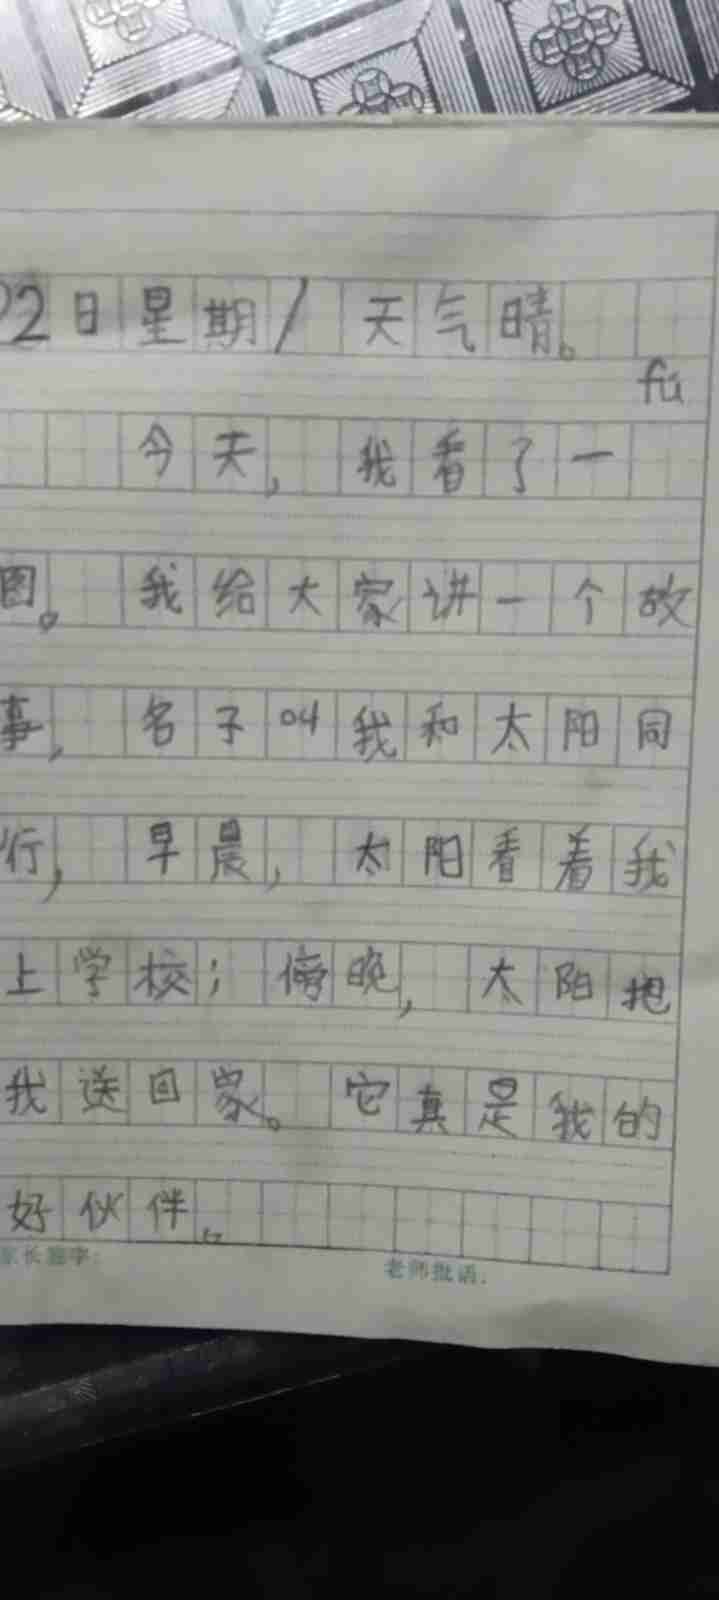 22日星期/ 天气晴。
fú
今天，我看了一
图。我给大家讲一个故
事，名子叫我和太阳同
行，早晨，太阳看着我
上学校；傍晚，太阳把
我送回家。它真是我的
好伙伴。
家长签字：
老师批语：